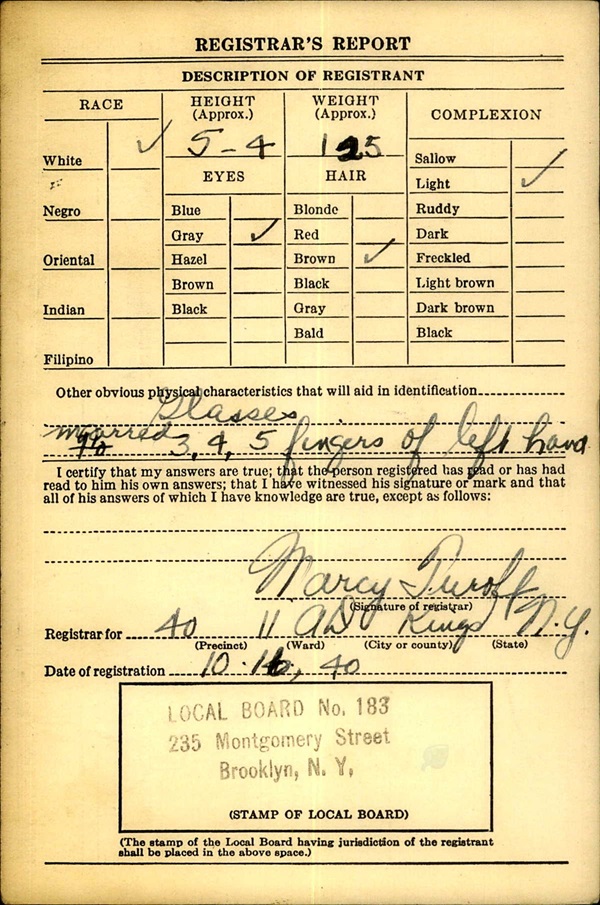 REGISTRAR'S REPORT
DESCRIPTION OF REGISTRANT
RACE
HEIGHT
(Approx.)
WEIGHT
(Approx.)
COMPLEXION
White ✓
5-4
125
Sallow
EYES
HAIR
Light ✓
Negro
Blue
Blonde
Ruddy
Gray ✓
Red
Dark
Oriental
Hazel
Brown ✓
Freckled
Brown
Black
Light brown
Indian
Black
Gray
Dark brown
Bald
Black
Filipino
Other obvious physical characteristics that will aid in identification
Glasses
marred 3, 4, 5 fingers of left hand
I certify that my answers are true; that the person registered has read or has had
read to him his own answers; that I have witnessed his signature or mark and that
all of his answers of which I have knowledge are true, except as follows:
Marcy Turoff
(Signature of registrar)
Registrar for 40 11 AD Kings N.Y.
(Precinct) (Ward) (City or county) (State)
Date of registration 10-16, 40
LOCAL BOARD No. 183
235 Montgomery Street
Brooklyn, N. Y.
(STAMP OF LOCAL BOARD)
(The stamp of the Local Board having jurisdiction of the registrant
shall be placed in the above space.)